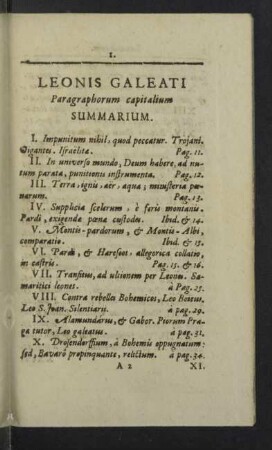 1.
LEONIS GALEATI
Paragraphorum capitalium
SUMMARIUM.
I. Impunitum nihil, quod peccatur. Trojani.
Gigantes. Israëlitæ. Pag. 11.
II. In universo mundo, Deum habere, ad nu-
tum parata, punitionis instrumenta. Pag. 12.
III. Terra, ignis, aër, aqua; ministeria pœ-
narum. Pag. 13.
IV. Supplicia scelerum, è feris montanis.
Pardi, exigendæ pœnæ custodes. Ibid. & 14.
V. Montis-pardorum, & Montis-Albi,
comparatio. Ibid. & 15.
VI. Pardi, & Harefoot: allegorica collatio,
in castris. Pag. 15. & 16.
VII. Transitus, ad ultionem per Leones. Sa-
maritici leones. à Pag. 25.
VIII. Contra rebelles Bohemicos, Leo Boicus,
Leo S. Joan. Silentiarii. à pag. 29.
IX. Alamundarus, & Gabor. Piorum Pra-
ga tutor, Leo galeatus. à pag. 31.
X. Drosendorffium, à Bohemis oppugnatum:
sed, Bavaro propinquante, relictum. à pag. 34.
A 2 XI.